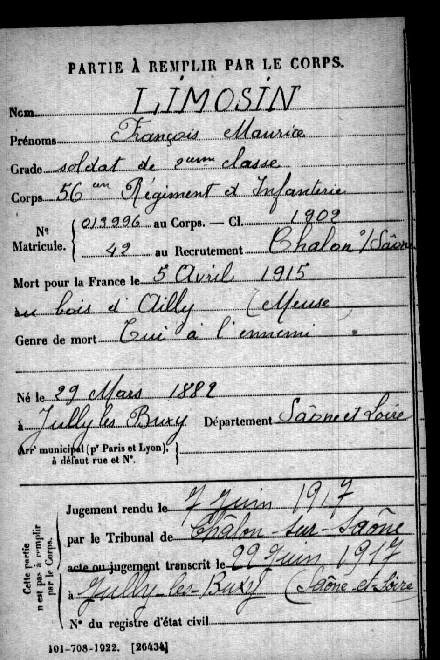 PARTIE À REMPLIR PAR LE CORPS.
Nom LIMOSIN
Prénoms François Maurice
Grade soldat de 2eme classe
Corps 56em Régiment d'Infanterie
N° Matricule. { 013996 au Corps. — Cl. 1902
42 au Recrutement Chalon s/ Saône
Mort pour la France le 5 Avril 1915
au bois d'Ailly (Meuse)
Genre de mort Tué à l'ennemi
Né le 29 Mars 1882
à Jully les Buxy Département Saône et Loire
Arrt municipal (pr Paris et Lyon), à défaut rue et N°. {
Cette partie n'est pas à remplir par le Corps. {
Jugement rendu le 7 Juin 1917
par le Tribunal de Châlon-sur-Saône
acte ou jugement transcrit le 22 Juin 1917
à Jully-les-Buxy (Saône-et-Loire
N° du registre d'état civil
101-708-1922. [26434]